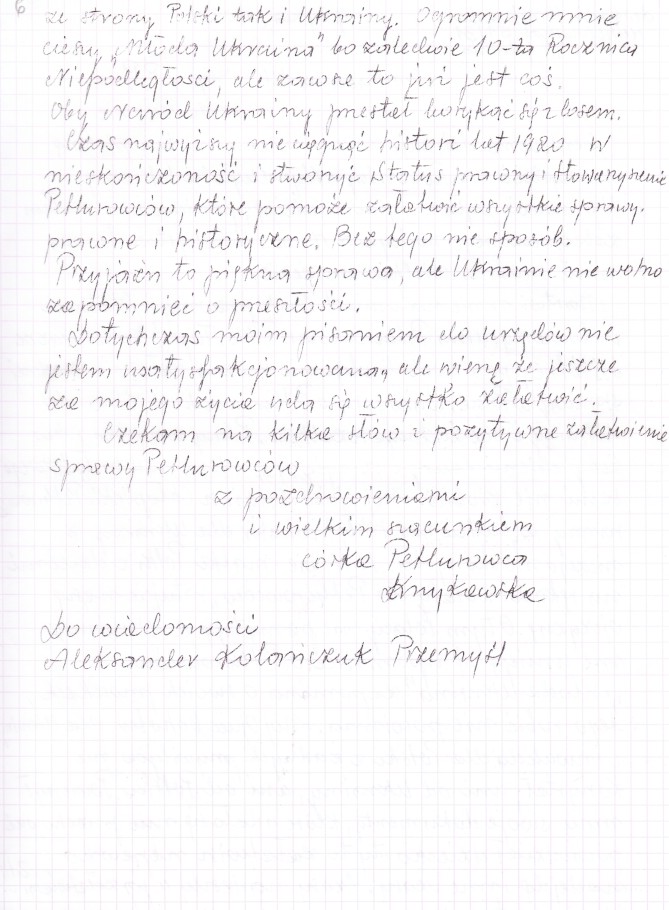 6
ze strony Polski tak i Ukrainy. Ogromnie mnie
cieszy „Młoda Ukraina" bo zaledwie 10-ta Rocznica
Niepodległości, ale zawsze to już jest coś.
Oby Naród Ukrainy przestał borykać się z losem.
Czas najwyższy nie ciągnąć histori lat 1920 w
nieskończoność i stworzyć Status prawny i Stowarzyszenie
Petlurowców, które pomoże załatwić wszystkie sprawy.
prawne i historyczne. Bez tego nie sposób.
Przyjaźń to piękna sprawa, ale Ukrainie nie wolno
zapomnieć o przeszłości.
Dotychczas moim pisaniem do urzędów nie
jestem usatysfakcjonowana, ale wierzę że jeszcze
za mojego życia uda się wszystko załatwić.
Czekam na kilka słów i pozytywne załatwienie
sprawy Petlurowców
z pozdrowieniami
i wielkim szacunkiem
córka Petlurowca
Do wiadomości
Aleksander Kolańczuk Przemyśl